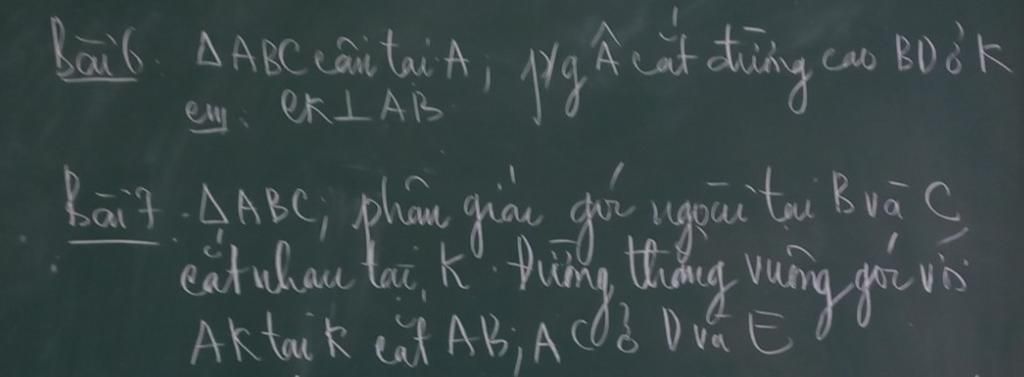 Bài 6. ΔABC cân tại A, p/g Â cắt đường cao BD ở K
cm: CK⊥AB
Bài 7. ΔABC, phân giác góc ngoài tại B và C
cắt nhau tại K. Đường thẳng vuông góc với
AK tại K cắt AB; AC ở D và E